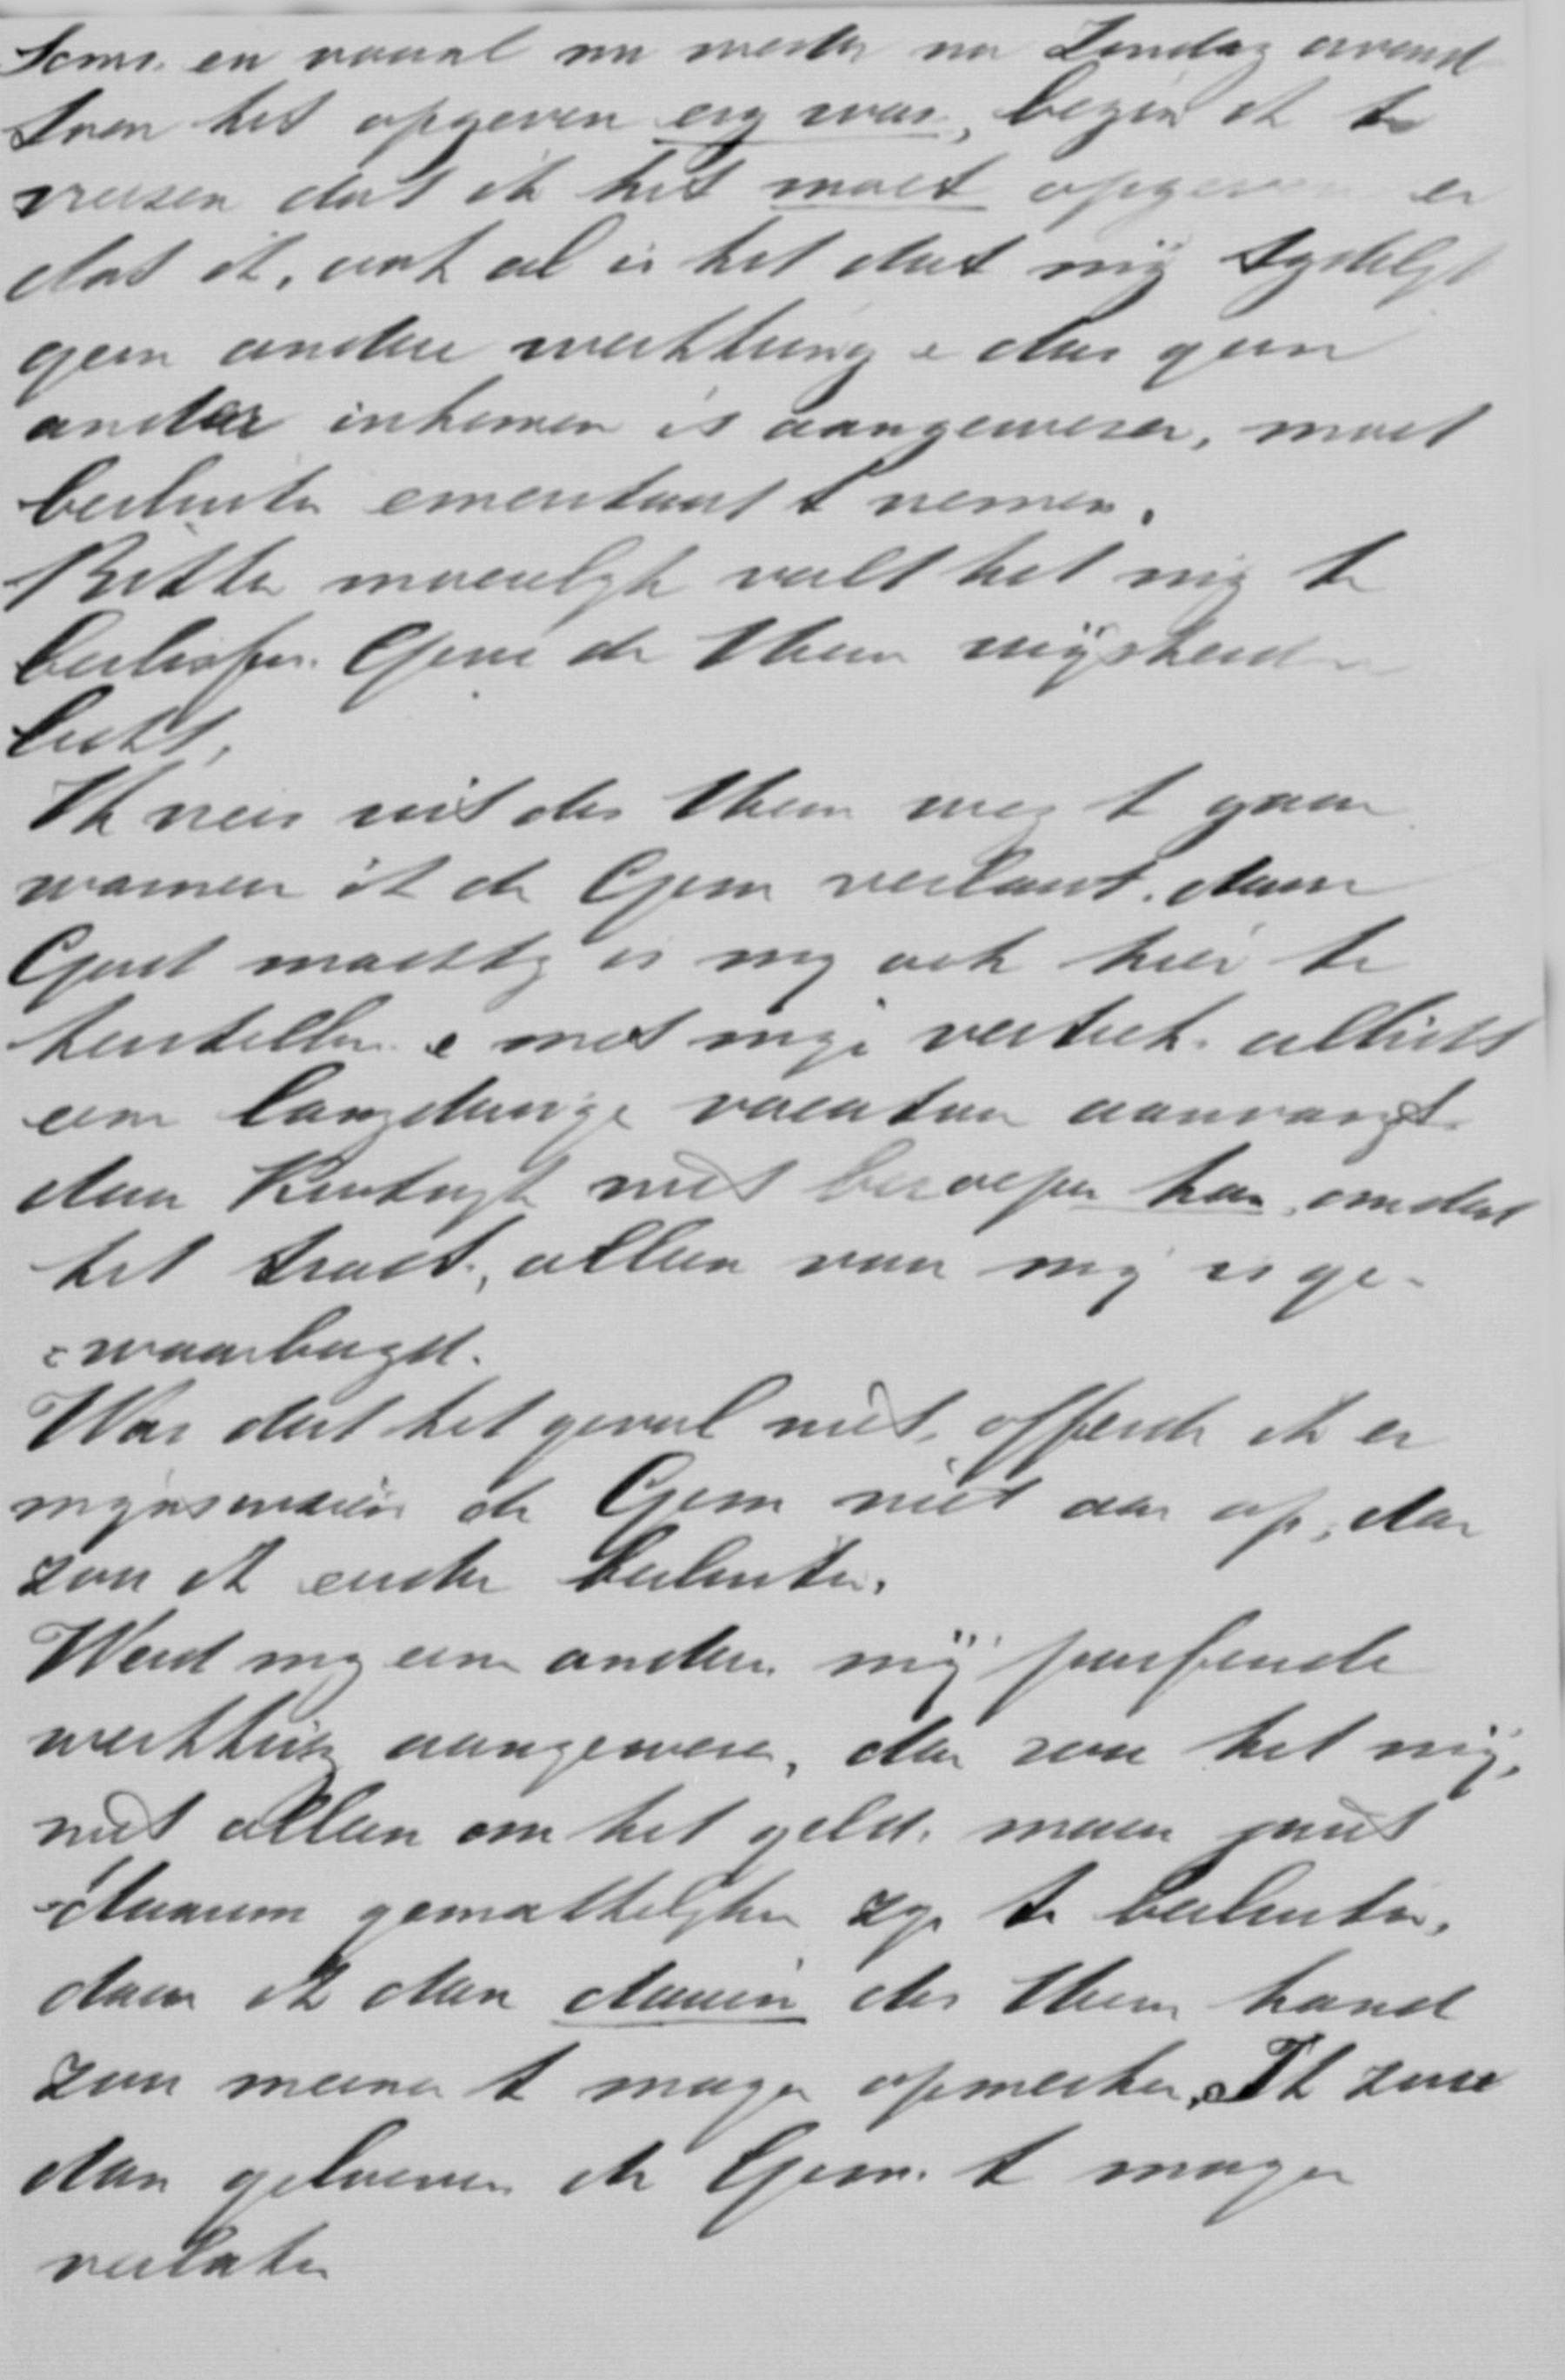 Soms en vooral nu weder na Zondag avond
toen het opgeven erg was, begin ik te
vreezen dat ik het moet opgeven en
dat ik, ook al is het dat mij tydelyk
geen andere werkkring e dus geen
ander inkomen is aangewezen, moet
besluiten emeritaat t nemen.
Bitter moeielyk valt het mij te
beslissen. Geve de Heer wijsheid en
licht,
Ik vrees uit des Heeren weg t gaan
wanneer ik de Gem verlaat. daar
God machtig is my ook hier te
herstellen e met myn vertrek altijd
een langdurige vacature aanvangt
daar Kerkelyk niet beroepen kan, omdat
het tract. alleen van my is ge-
=waarborgd.
Was dat het geval niet, offerde ik er
mynentwille de Gem niet aan op, dan
zou ik eerder besluiten.
Werd my een andere mij passende
werkkring aangewezen, dan zou het mij,
niet alleen om het geld, maar juist
daarom gemakkelyker zyn te besluiten,
daar ik dan daarin des Heeren hand
zou meenen t mogen opmerken. Ik zou
dan gelooven de Gem. t mogen
verlaten